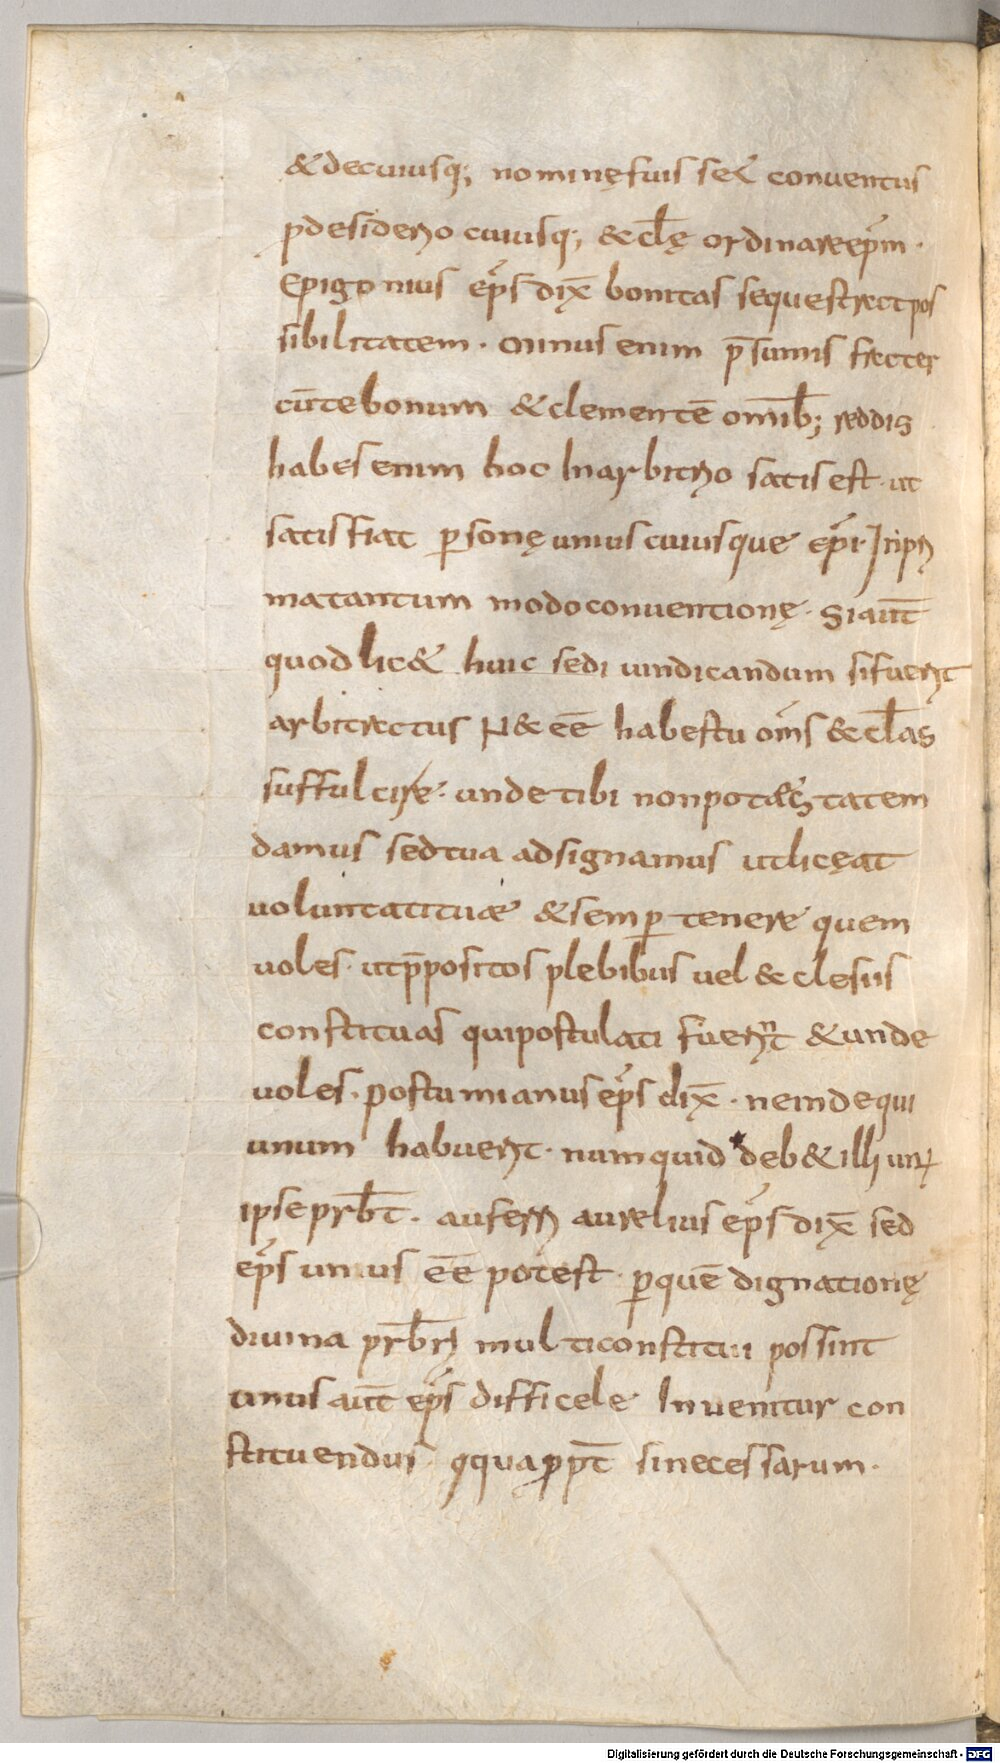 &decuiusq; nominęfuis seć conuentus
pdesiderio cuiusq; &clę ordinareepm·
Epigonius eps dix̄ bonitas sequestrat pos
sibilitatem· minus enim p̄sumis frater
cūtebonum &clementē omib; reddis
habes enim hoc Inarbitrio satis est· ut
satisfiat psonę uniuscuiusque epi· In ip
matantum modoconuentionę· Siaut̄
quodlic& huic sedi uindicandum sifuert
arbitratus N&eē habestu oms &clas
suffulcire· unde tibi nonpot&statem
damus sedtua adsignamus utlicęat
uoluntatituæ &semp tenere quem
uoles· utp̄positos plebibus uel &clesiis
constituas quipostulati fuernt &unde
uoles· postumianus eps dix̄· neinde qui
unum habuert· numquid deb& illi un
ipse prb̄t· auferri aurelius eps dix̄ sed
eps unus eē potest· pquē dignationę
diuina prb̄ri multiconstitui possint
unus aut̄ eps difficele Inuenitur con
stituendus· qquapp̄t sinecessarum·
Digitalisierung gefördert durch die Deutsche Forschungsgemeinschaft - DFG